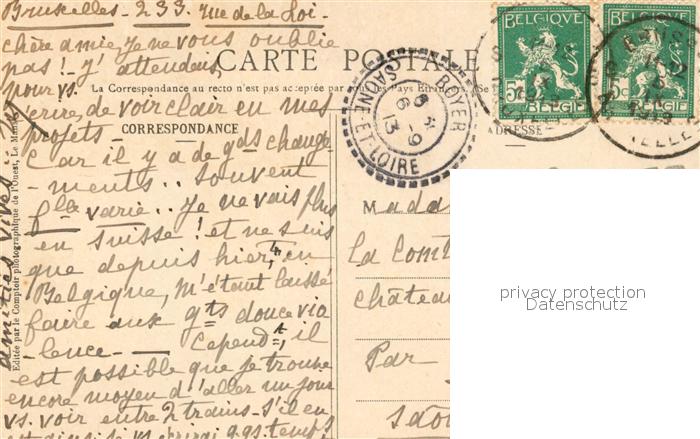 Bruxelles - 233 rue de la Loi -
chère amie, je ne vous oublie
pas ! j'attendais,
pour vs.
écrire, de voir clair en mes
projets -
Car il y a de gds change
- ments .. Souvent
flle varie .. Je ne vais plus
en Suisse ! et ne suis
que depuis hier, en
Belgique, M'étant laissé
faire aux gts douce vio
- lence - Cependt, il
est possible que je trouve
encore moyen d'aller un jour
vs. voir entre 2 trains - S'il en
est ainsi je vs écrirai qqs temps
amitiés vives
CARTE POSTALE
La Correspondance au recto n'est pas acceptée par tous les Pays Étrangers. (Se
CORRESPONDANCE
ADRESSE
Éditée par le Comptoir photographique de l'Ouest, Le Mans
BELGIQUE
5c
BELGIË
BELGIQUE
5c
BELGIË
BOYER
SAONE-ET-LOIRE
6 -9
13
Mada
La Comt
château
Par
Saô
privacy protection
Datenschutz